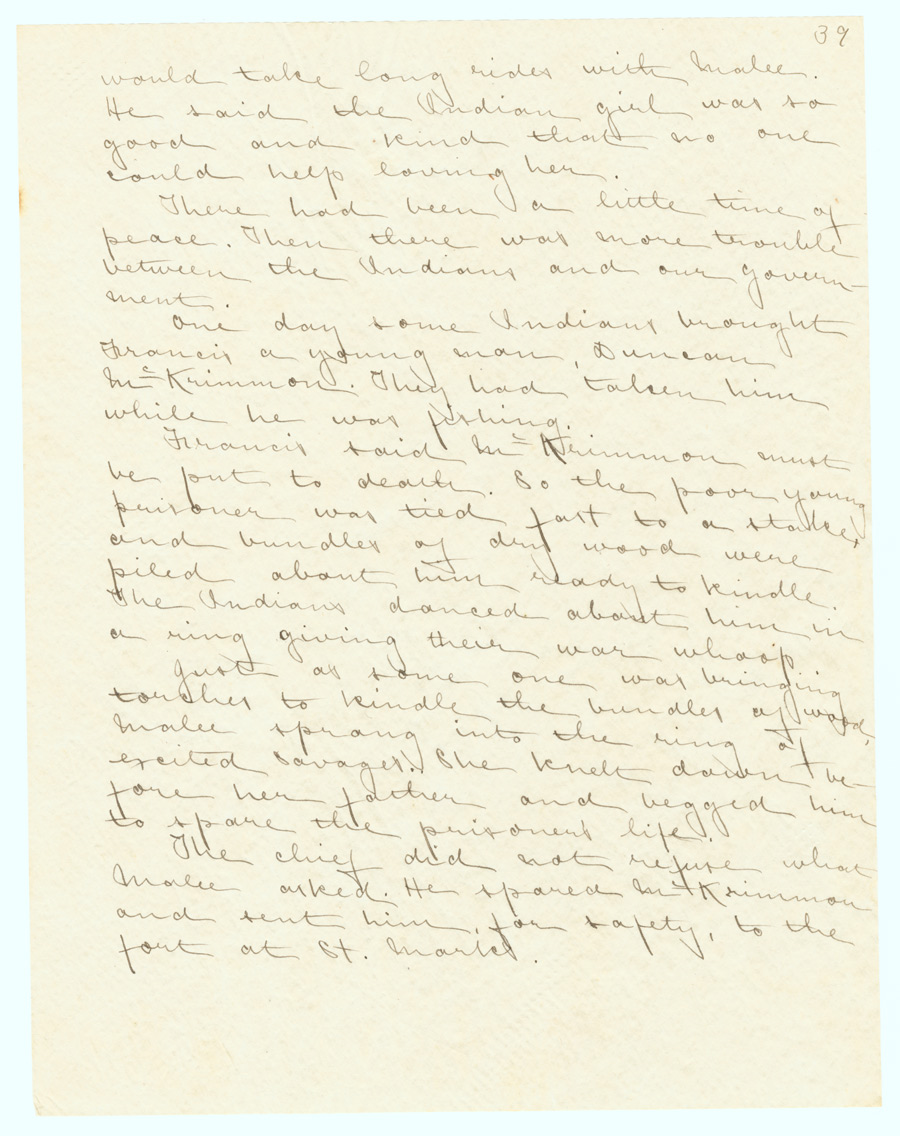 39
would take long rides with Malee.
He said the Indian girl was so
good and kind that no one
could help loving her.
There had been a little time of
peace. Then there was more trouble
between the Indians and our govern-
ment.
One day some Indians brought
Francis a young man, Duncan
McKrimmon. They had taken him
while he was fishing.
Francis said McKrimmon must
be put to death. So the poor young
prisoner was tied fast to a stake,
and bundles of dry wood were
piled about him ready to kindle.
The Indians danced about him in
a ring giving their war whoop.
Just as some one was bringing
torches to kindle the bundles of wood,
Malee sprang into the ring of
excited savages. She knelt down be-
fore her father and begged him
to spare the prisoner's life.
The chief did not refuse what
Malee asked. He spared McKrimmon
and sent him, for safety, to the
fort at St. Marks.